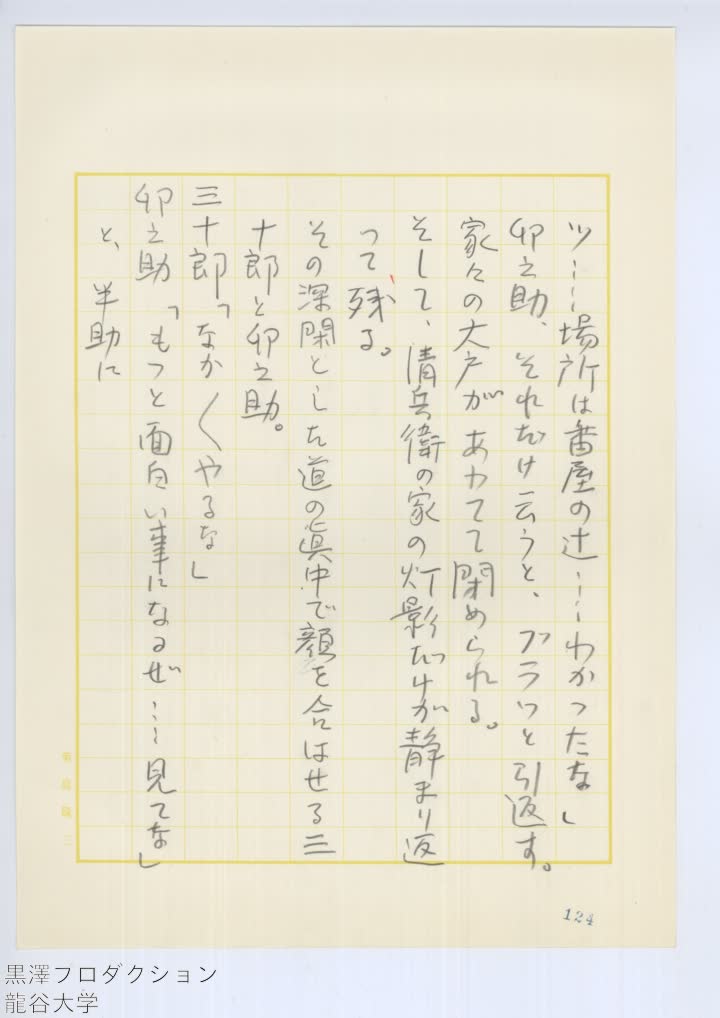 ツ……場所は番屋の辻……わかつたな」
卯之助、それだけ云うと、ブラツと引返す。
家々の大戸があわてて閉められる。
そして、清兵衛の家の灯影だけが静まり返
って残る。
その深閑とした道の眞中で顔を合はせる三
十郎と卯之助。
三十郎「なか〳〵やるな」
卯之助「もつと面白い事になるぜ……見てな」
と、半助に
124
黒澤プロダクション
龍谷大学